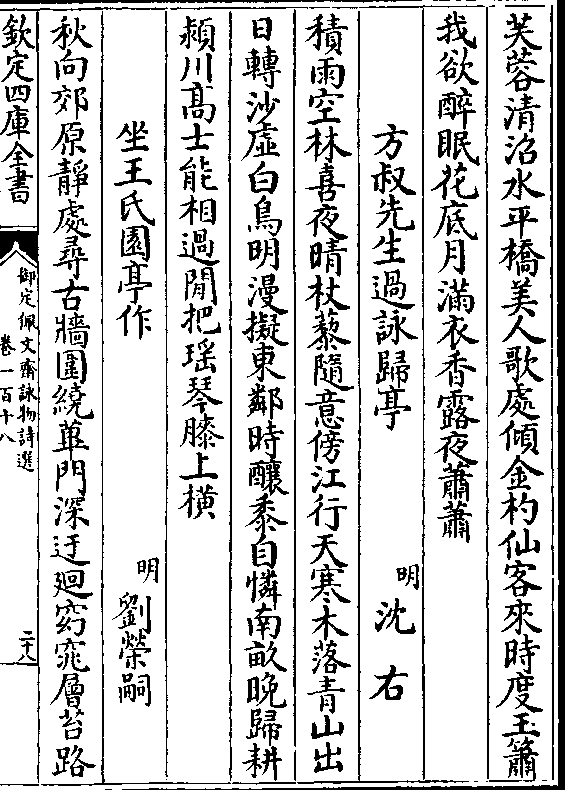 芙蓉清沼水平橋美人歌處傾金杓仙客來時度玉簫
我欲醉眠花底月滿衣香露夜蕭蕭
方叔先生過詠歸亭
明沈右
積雨空林喜夜晴杖藜隨意傍江行天寒木落青山出
日轉沙虛白鳥明漫擬東鄰時釀黍自憐南畝晚歸耕
潁川髙士能相過閒把瑶琴膝上橫
坐王氏園亭作
明劉榮嗣
秋向郊原靜處尋古牆圍繞蓽門深迂廻窈窕層苔路
欽定四庫全書
御定佩文齋詠物詩選
卷一百十八
二十八